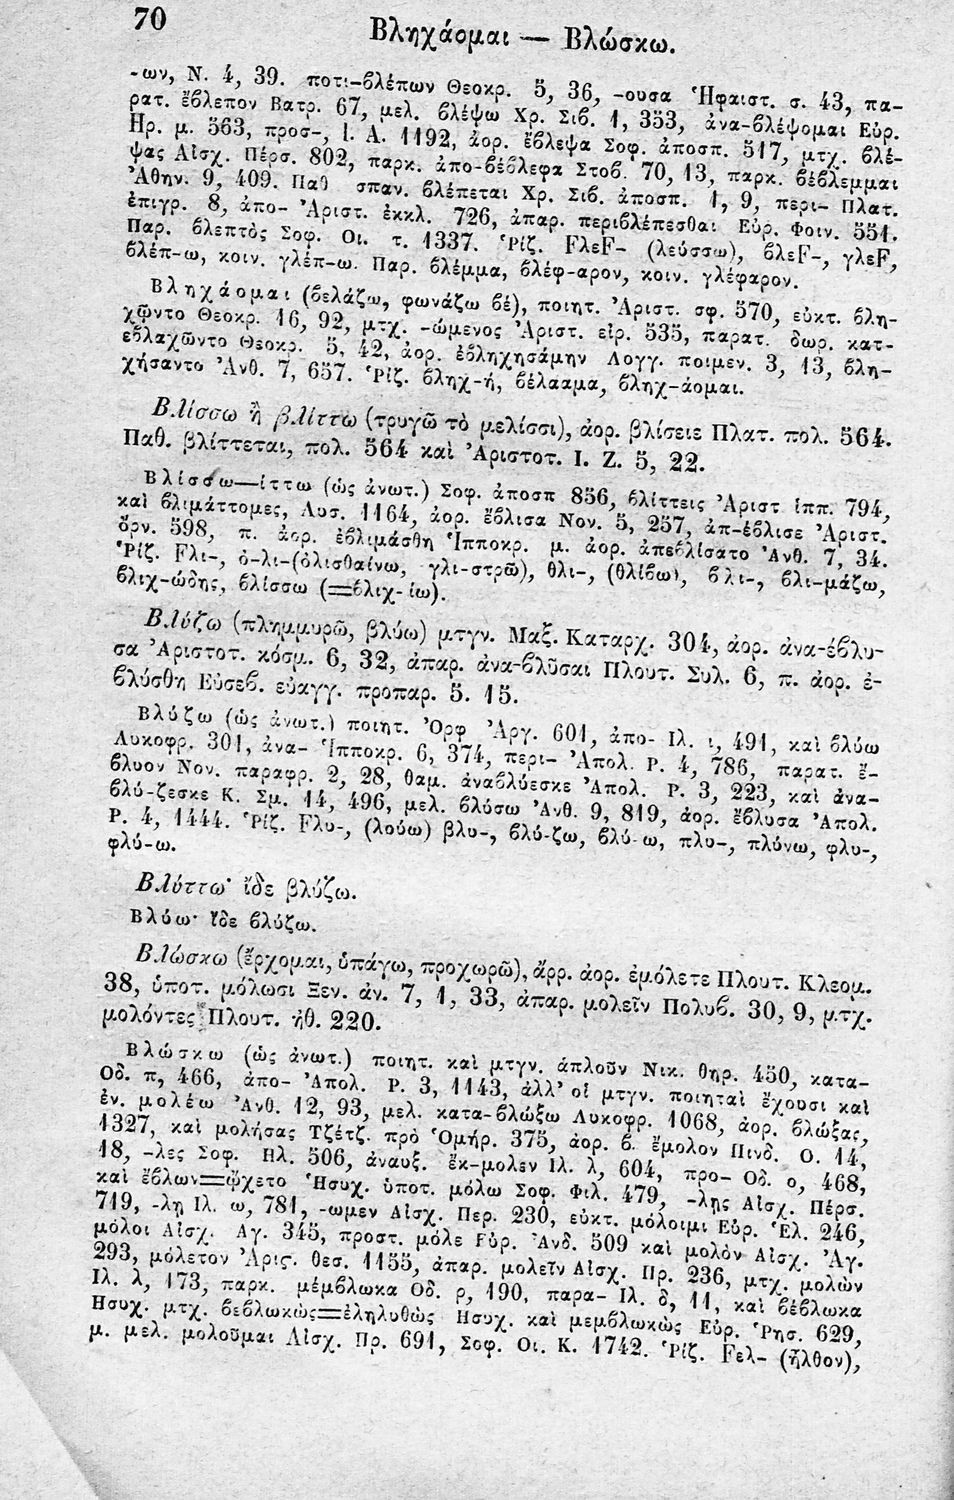 70
Βληχάομαι — Βλώσκω.
-ων, Ν. 4, 39. ποτι-βλέπων Θεοκρ. 5, 36, -ουσα Ἡφαιστ. σ. 43, πα-
ρατ. ἔβλεπον Βατρ. 67, μελ. βλέψω Χρ. Σιβ. 1, 353, ἀνα-βλέψομαι Εὐρ.
Ηρ. μ. 563, προσ-, Ι. Α. 1192, ἀορ. ἔβλεψα Σοφ. ἀποσπ. 517, μτχ. βλέ-
ψας Αἰσχ. Πέρσ. 802, παρκ. ἀπο-βέβλεφα Στοβ. 70, 13, παρκ. βέβλεμμαι
Ἀθην. 9, 409. Παθ σπαν. βλέπεται Χρ. Σιβ. ἀποσπ. 1, 9, περι- Πλατ.
ἐπιγρ. 8, ἀπο- Ἀριστ. ἐκκλ. 726, ἀπαρ. περιβλέπεσθαι Εὐρ. Φοιν. 551.
Παρ. βλεπτὸς Σοφ. Οι. τ. 1337. Ῥίζ. FλεF- (λεύσσω), βλεF-, γλεF,
βλέπ-ω, κοιν. γλέπ-ω. Παρ. βλέμμα, βλέφ-αρον, κοιν. γλέφαρον.
Βληχάομαι (βελάζω, φωνάζω βέ), ποιητ. Ἀριστ. σφ. 570, εὐκτ. βλη-
χῷντο Θεοκρ. 16, 92, μτχ. -ώμενος Ἀριστ. εἰρ. 535, παρατ. δωρ. κατ-
εβλαχῶντο Θεοκρ. 5, 42, ἀορ. ἐβληχησάμην Λογγ. ποιμεν. 3, 13, βλη-
χήσαντο Ἀνθ. 7, 657. Ῥίζ. βληχ-ή, βέλααμα, βληχ-άομαι.
Βλίσσω ἢ βλίττω (τρυγῶ τὸ μελίσσι), ἀορ. βλίσειε Πλατ. πολ. 564.
Παθ. βλίττεται, πολ. 564 καὶ Ἀριστοτ. Ι. Ζ. 5, 22.
Βλίσσω—ίττω (ὡς ἀνωτ.) Σοφ. ἀποσπ 856, βλίττεις Ἀριστ ἱππ. 794,
καὶ βλιμάττομες, Λυσ. 1164, ἀορ. ἔβλισα Νον. 5, 257, ἀπ-έβλισε Ἀριστ.
ὄρν. 598, π. ἀορ. ἐβλιμάσθη Ἱπποκρ. μ. ἀορ. ἀπεβλίσατο Ἀνθ. 7, 34.
Ῥίζ. Fλι-, ὀ-λι-(ὀλισθαίνω, γλι-στρῶ), θλι-, (θλίβω), βλι-, βλι-μάζω,
βλιχ-ώδης, βλίσσω (=βλιχ-ίω).
Βλύζω (πλημμυρῶ, βλύω) μτγν. Μαξ. Καταρχ. 304, ἀορ. ἀνα-έβλυ-
σα Ἀριστοτ. κόσμ. 6, 32, ἀπαρ. ἀνα-βλῦσαι Πλουτ. Συλ. 6, π. ἀορ. ἐ-
βλύσθη Εὐσεβ. εὐαγγ. προπαρ. 5. 15.
Βλύζω (ὡς ἀνωτ.) ποιητ. Ὀρφ Ἀργ. 601, ἀπο- Ιλ. ι, 491, καὶ βλύω
Λυκοφρ. 301, ἀνα- Ἱπποκρ. 6, 374, περι- Ἀπολ. Ρ. 4, 786, παρατ. ἔ-
βλυον Νον. παραφρ. 2, 28, θαμ. ἀναβλύεσκε Ἀπολ. Ρ. 3, 223, καὶ ἀνα-
βλύ-ζεσκε Κ. Σμ. 14, 496, μελ. βλύσω Ἀνθ. 9, 819, ἀορ. ἔβλυσα Ἀπολ.
Ρ. 4, 1444. Ῥίζ. Fλυ-, (λούω) βλυ-, βλύ-ζω, βλύ-ω, πλυ-, πλύνω, φλυ-,
φλύ-ω.
Βλύττω· ἴδε βλύζω.
Βλύω· ἴδε βλύζω.
Βλώσκω (ἔρχομαι, ὑπάγω, προχωρῶ), ἄρρ. ἀορ. ἐμόλετε Πλουτ. Κλεομ.
38, ὑποτ. μόλωσι Ξεν. ἀν. 7, 1, 33, ἀπαρ. μολεῖν Πολυβ. 30, 9, μτχ.
μολόντες Πλουτ. ἠθ. 220.
Βλώσκω (ὡς ἀνωτ.) ποιητ. καὶ μτγν. ἁπλοῦν Νικ. θηρ. 450, κατα-
Οδ. π, 466, ἀπο- Ἀπολ. Ρ. 3, 1143, ἀλλ' οἱ μτγν. ποιηταὶ ἔχουσι καὶ
ἐν. μολέω Ἀνθ. 12, 93, μελ. κατα-βλώξω Λυκοφρ. 1068, ἀορ. βλώξας,
1327, καὶ μολήσας Τζέτζ. πρὸ Ὁμήρ. 375, ἀορ. β. ἔμολον Πινδ. Ο. 14,
18, -λες Σοφ. Ηλ. 506, ἀναυξ. ἔκ-μολεν Ιλ. λ, 604, προ- Οδ. ο, 468,
καὶ ἔβλων=ᾤχετο Ἡσυχ. ὑποτ. μόλω Σοφ. Φιλ. 479, -λῃς Αἰσχ. Πέρσ.
719, -λῃ Ιλ. ω, 781, -ωμεν Αἰσχ. Περ. 230, εὐκτ. μόλοιμι Εὐρ. Ἑλ. 246,
μόλοι Αἰσχ. Αγ. 345, προστ. μόλε Εὐρ. Ἀνδ. 509 καὶ μολὸν Αἰσχ. Ἀγ.
293, μόλετον Ἀρις. θεσ. 1155, ἀπαρ. μολεῖν Αἰσχ. Πρ. 236, μτχ. μολὼν
Ιλ. λ, 173, παρκ. μέμβλωκα Οδ. ρ, 190, παρα- Ιλ. δ, 11, καὶ βέβλωκα
Ησυχ. μτχ. βεβλωκὼς=ἐληλυθὼς Ησυχ. καὶ μεμβλωκὼς Εὐρ. Ῥησ. 629,
μ. μελ. μολοῦμαι Αἰσχ. Πρ. 691, Σοφ. Οι. Κ. 1742. Ῥίζ. Fελ- (ἦλθον),